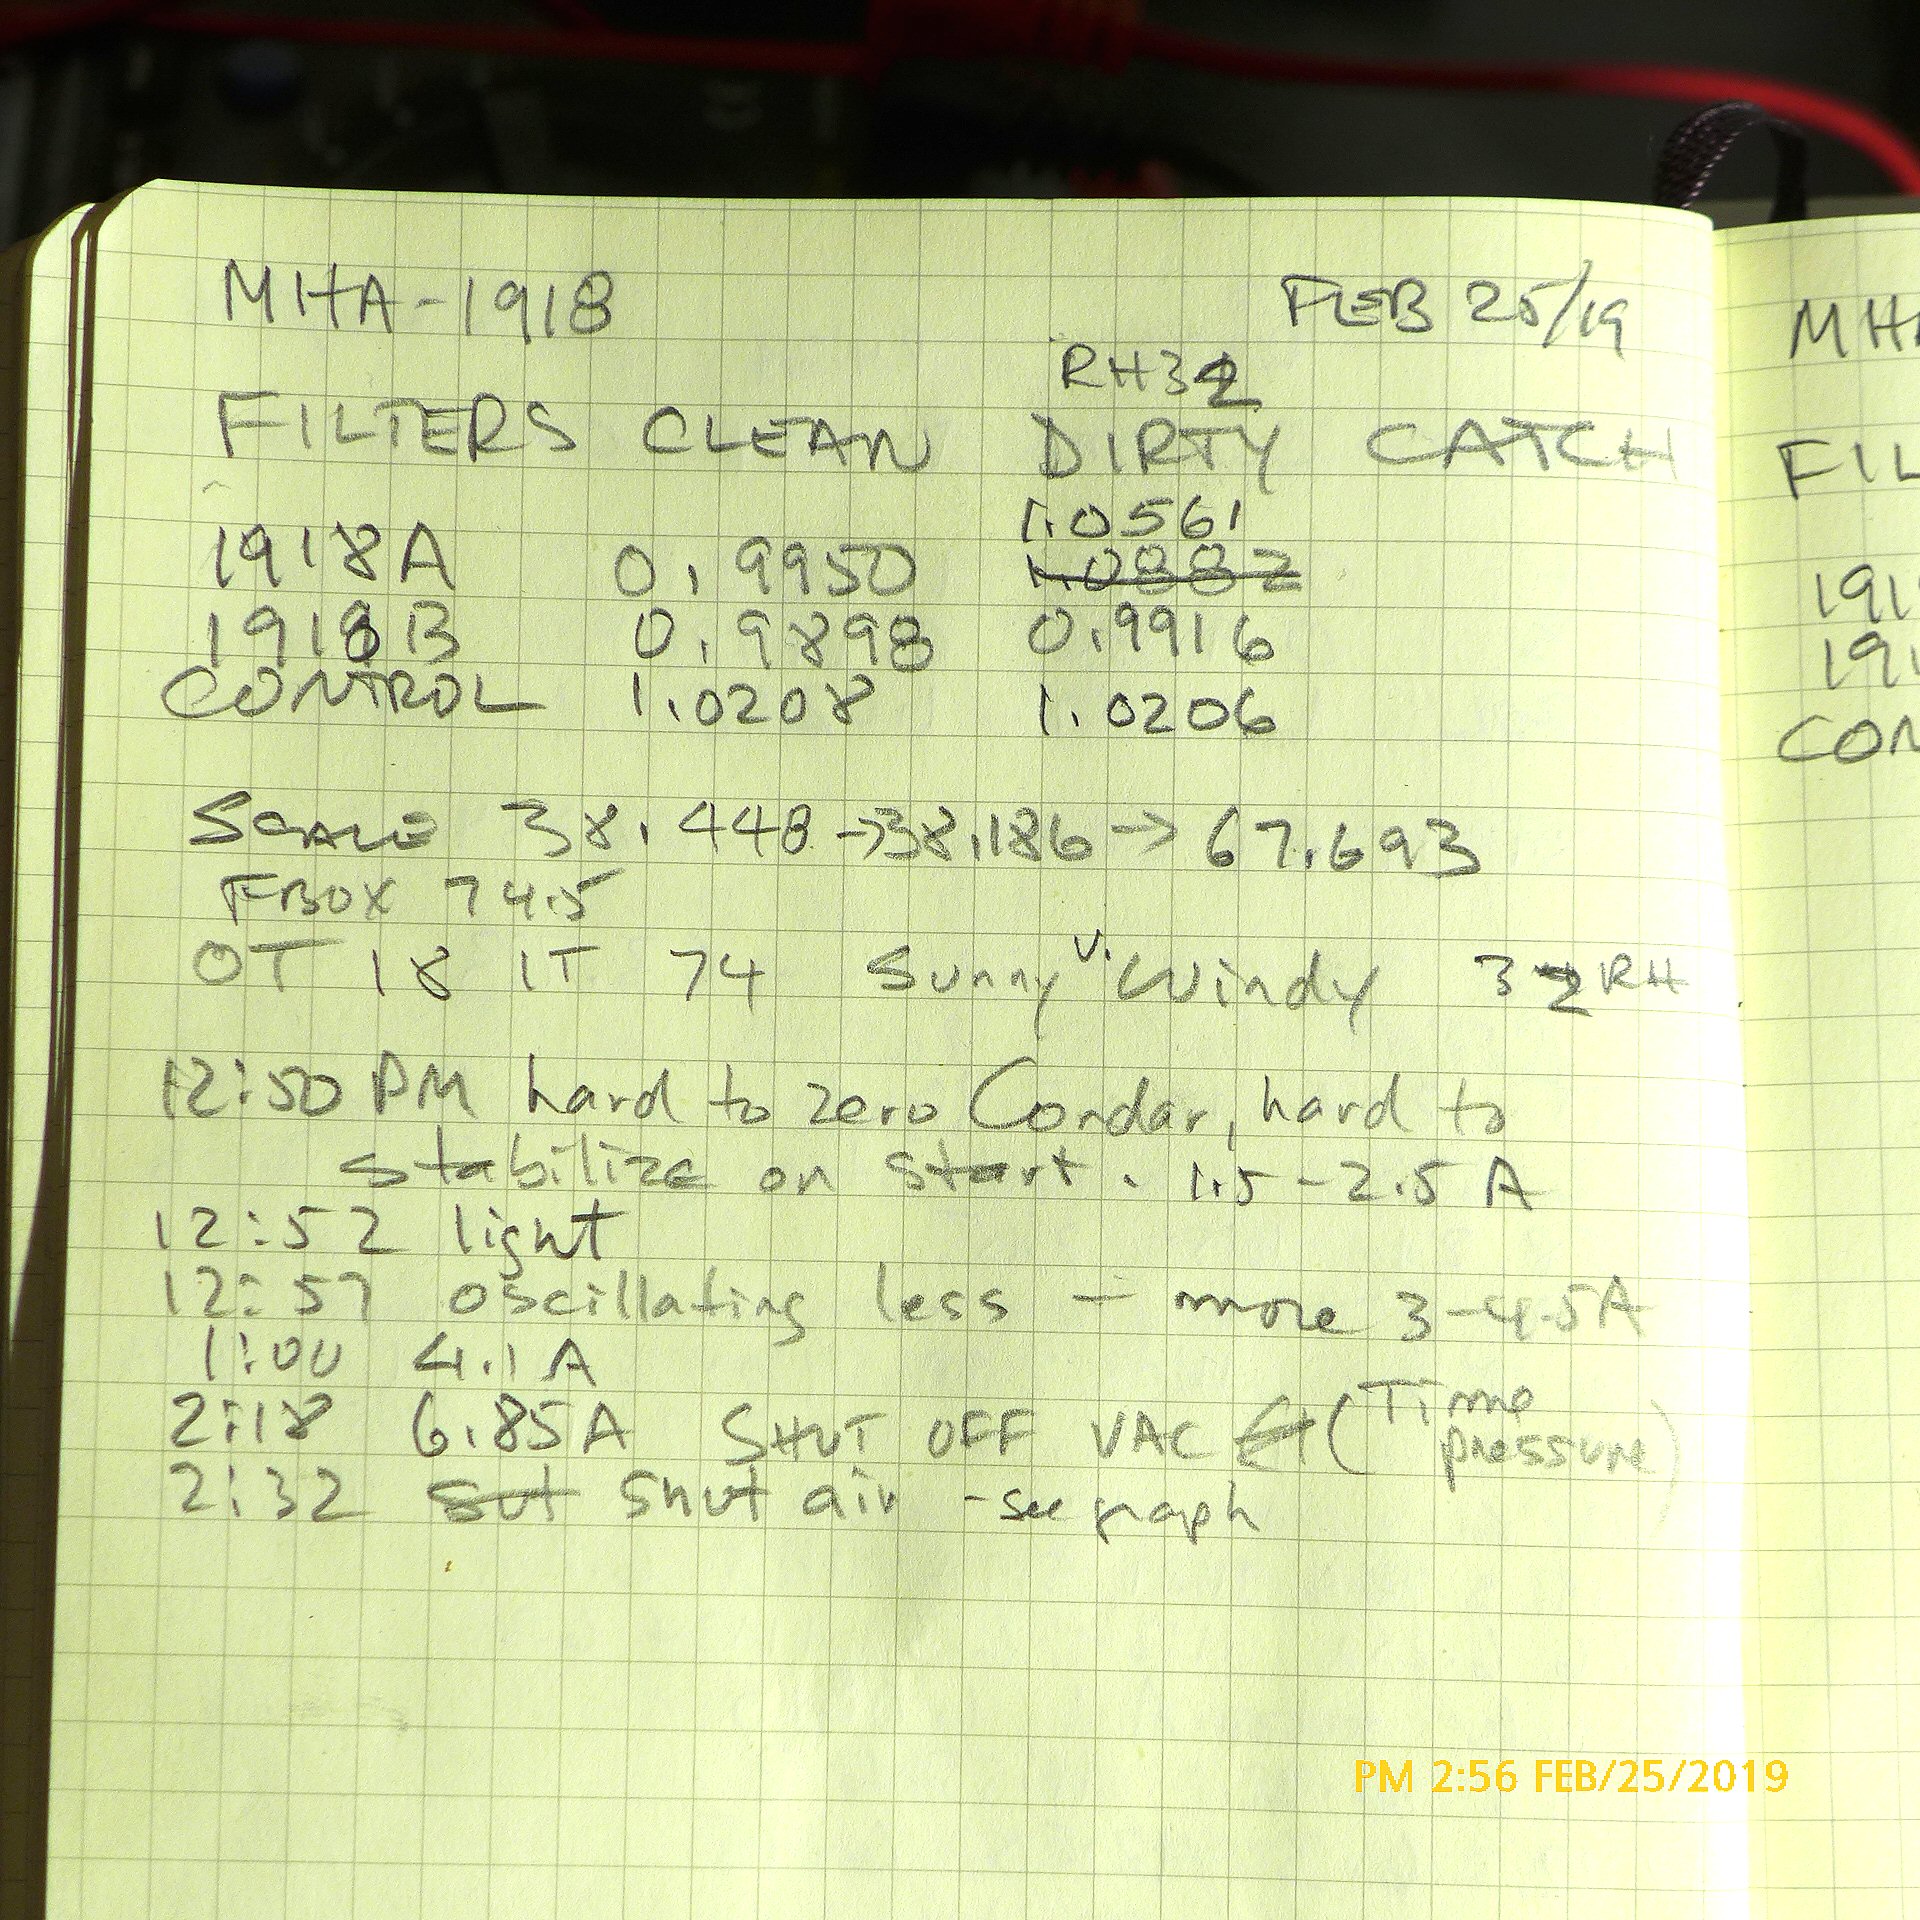 MHA-1918 FEB 25/19
RH32
FILTERS CLEAN DIRTY CATCH
1.0561
1918A 0.9950 1.0882
1918B 0.9898 0.9916
CONTROL 1.0208 1.0206
Scale 38.448 → 38.186 → 67.693
FBOX 74.5
OT 18 IT 74 Sunny v. Windy 32 RH
12:50 PM hard to zero Condar, hard to
stabilize on start. 1.5-2.5 A
12:52 light
12:57 oscillating less - more 3-4.5A
1:00 4.1 A
2:18 6.85A SHUT OFF VAC (Time pressure)
2:32 sut shut air - see graph
MHA
FIL
191
191
CON
PM 2:56 FEB/25/2019